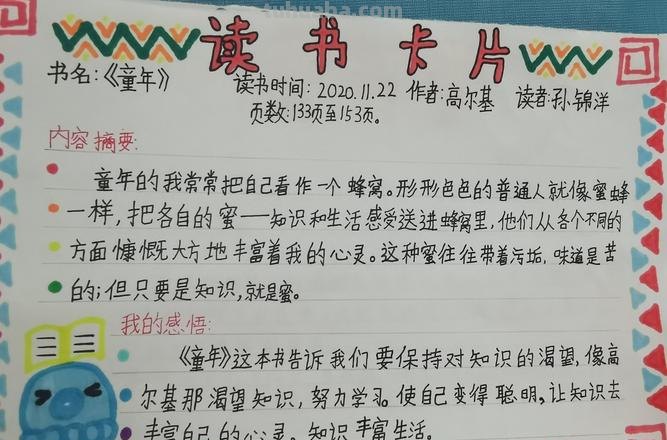 tuhuaba.com
读书卡片
书名:《童年》 读书时间: 2020.11.22 作者:高尔基 读者:孙锦洋
页数:133页至153页。
内容摘要:
童年的我常常把自己看作一个蜂窝。形形色色的普通人就像蜜蜂
一样,把各自的蜜——知识和生活感受送进蜂窝里,他们从各个不同的
方面慷慨大方地丰富着我的心灵。这种蜜住往带着污垢,味道是苦
的;但只要是知识,就是蜜。
我的感悟:
《童年》这本书告诉我们要保持对知识的渴望,像高
尔基那渴望知识,努力学习。使自己变得聪明,让知识去
丰富自己的心灵。知识丰富生活。